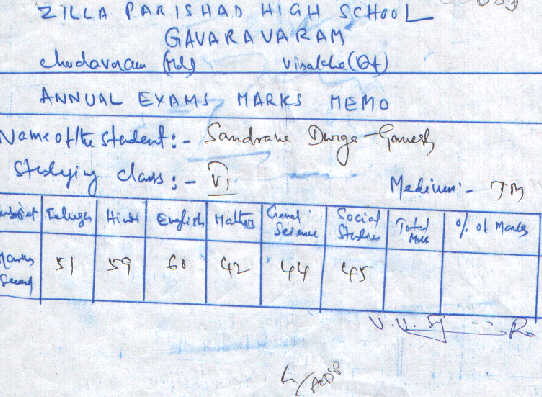 ZILLA PARISHAD HIGH SCHOOL
GAVARAVARAM
chodavaram (Md) Visakha (Dt)
ANNUAL EXAMS MARKS MEMO
Name of the student :- Durga Ganesh
Studying class :- VI
Medium :- TM
Subject Telugu Hindi English Maths Genl. Science Social Studies Total Marks % of Marks
Marks 51 59 60 42 44 45